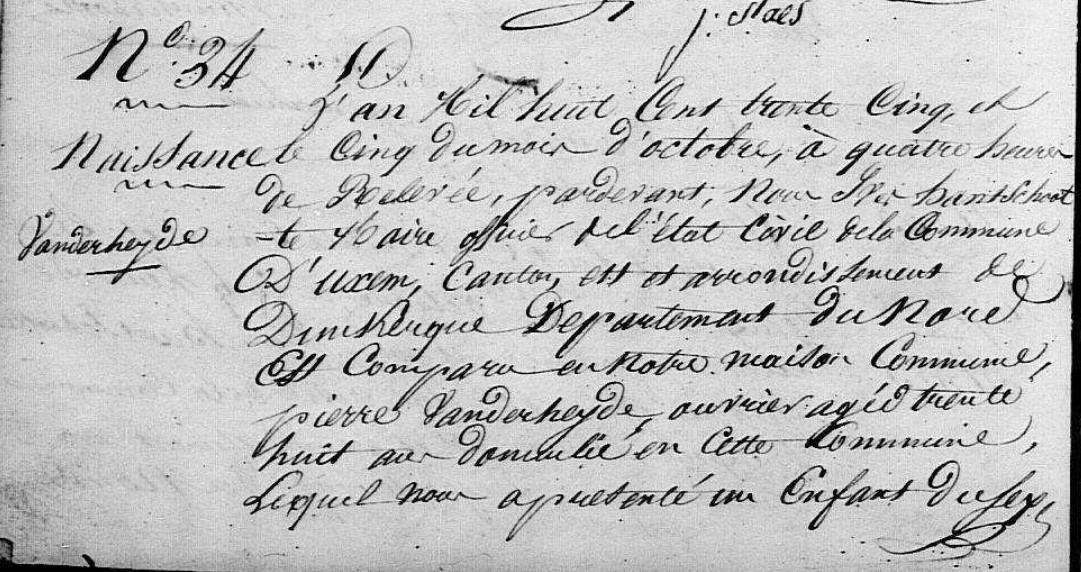 j. Staes
N.º 34
L'an Mil huit Cent trente Cinq, et
Naissance
le Cinq du mois d'octobre, à quatre heures
de Relevée, pardevant, Nous Ives hantSchoot
Vanderheyde
-te Maire officier de l'état Civil de la Commune
D'uxem, Canton, est et arrondissement de
Dunkerque Departement du Nord
Est Comparu en Notre maison Commune,
pierre Vanderheyde, ouvrier agéd trente
huit ans domicilié en Cette Commune,
Lequel nous a presenté un Enfant du sexe